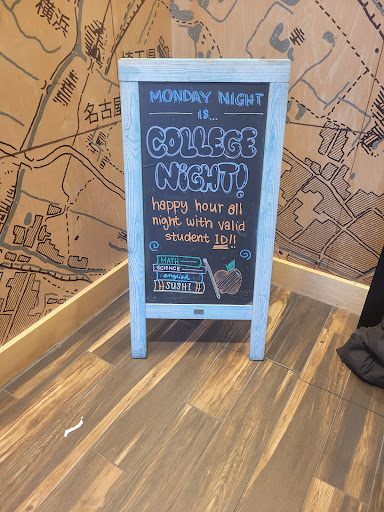 横浜
名古屋
MONDAY NIGHT
is...
COLLEGE
NiGHT!
happy hour all
night with valid
student ID!!
MATH
SCIENCE
english
SUSHI